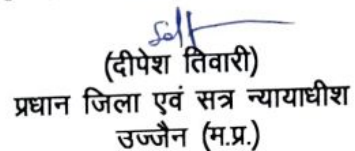 (दीपेश तिवारी)
प्रधान जिला एवं सत्र न्यायाधीश
उज्जैन (म.प्र.)